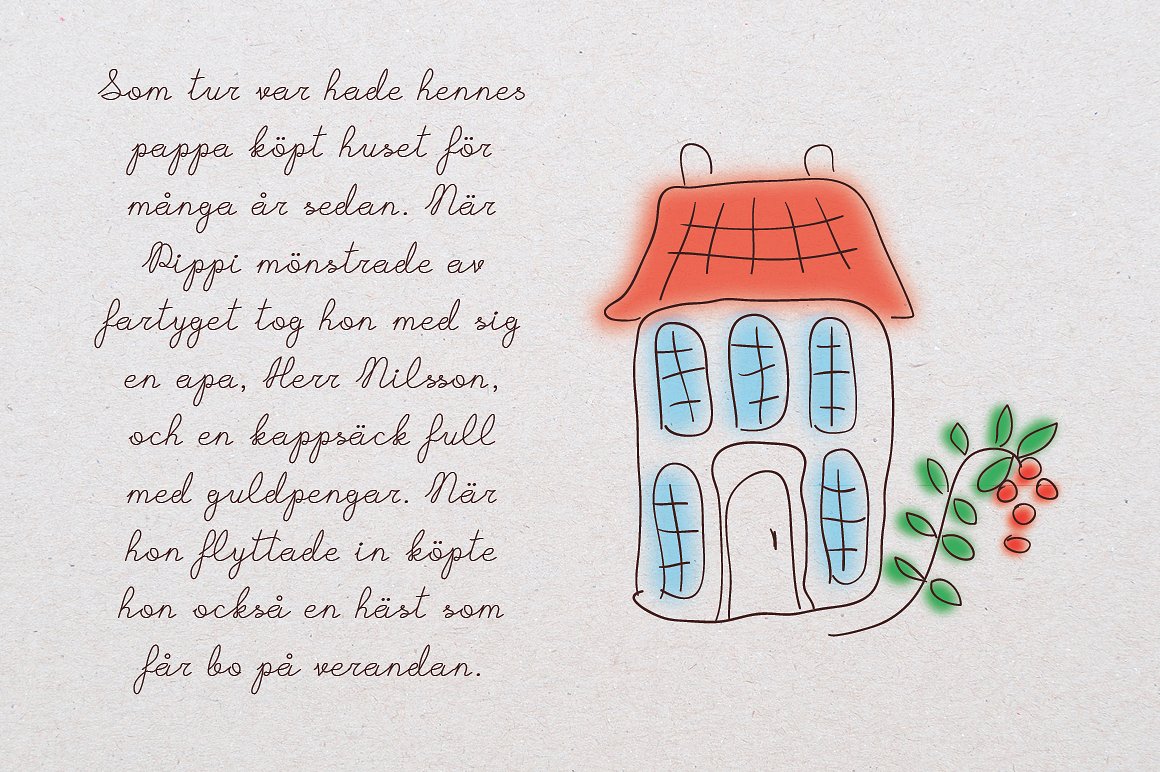 Som tur var hade hennes
pappa köpt huset för
många år sedan. När
Pippi mönstrade av
fartyget tog hon med sig
en apa, Herr Nilsson,
och en kappsäck full
med guldpengar. När
hon flyttade in köpte
hon också en häst som
får bo på verandan.